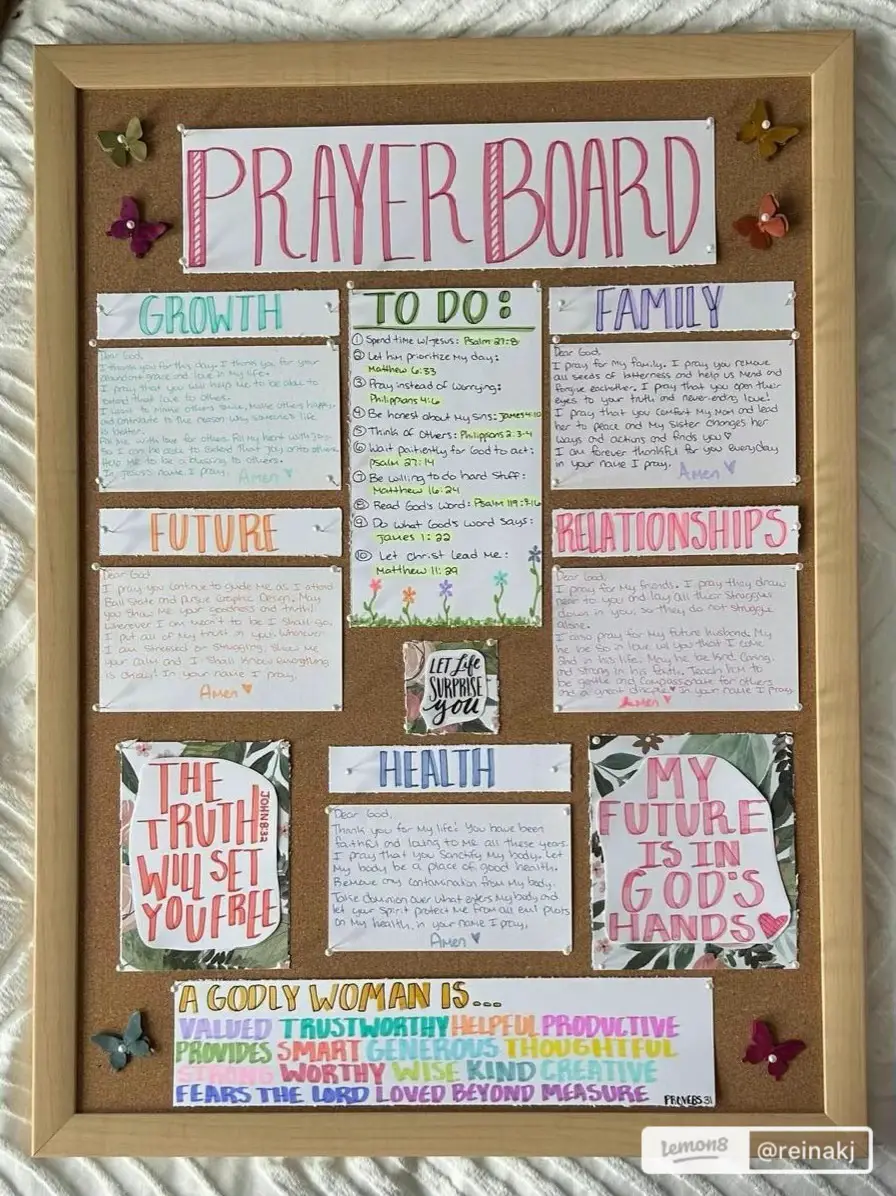 PRAYER BOARD
GROWTH
Dear God,
I thank you for this day. I thank you for your
abundant grace and love in my life.
I pray that you will help me to be able to
extend that love to others.
I want to make others smile, make others happy,
and contribute to the reason why someone's life
is better.
Fill me with love for others. Fill my heart with joy
so I can be able to extend that joy onto others.
Help me to be a blessing to others.
In Jesus' name I pray,
Amen
TO DO:
① Spend time w/ Jesus: Psalm 27:8
② Let him prioritize my day:
Matthew 6:33
③ Pray instead of worrying:
Philippians 4:6
④ Be honest about my sins: James 4:10
⑤ Think of Others: Philippians 2:3-4
⑥ Wait paitiently for God to act:
Psalm 27:14
⑦ Be willing to do hard stuff:
Matthew 16:24
⑧ Read God's Word: Psalm 119:9-16
⑨ Do what God's word says:
James 1:22
⑩ Let Christ lead me:
Matthew 11:29
FAMILY
Dear God,
I pray for my family. I pray you remove
all seeds of bitterness and help us mend and
forgive eachother. I pray that you open their
eyes to your truth and never-ending love!
I pray that you comfort my Mom and lead
her to peace and my sister changes her
ways and actions and finds you
I am forever thankful for you everyday
in your name I pray, Amen
FUTURE
Dear God
I pray you continue to guide me as I attend
Ball State and pursue Graphic Design. May
you show me your goodness and truth!
Wherever I am meant to be I shall go.
I put all of my trust in you. Whenever
I am stressed or struggling, show me
your calm and I shall know everything
is okay! In your name I pray,
Amen
RELATIONSHIPS
Dear God,
I pray for my friends. I pray they draw
near to you and lay all their struggles
down in you, so they do not struggle
alone.
I also pray for my future husband. May
he be so in love w/ you that I come
2nd in his life. May he be kind, caring,
and strong in his faith. Teach him to
be gentle and compassionate for others
and a great disciple In your name I pray
Amen
LET Life
SURPRISE
you
THE
TRUTH
WILL SET
YOU FREE
JOHN 8:32
HEALTH
Dear God,
Thank you for my life! You have been
faithful and loving to me all these years.
I pray that you sanctify my body. Let
my body be a place of good health.
Remove any contamination from my body.
Take dominion over what enters my body and
let your spirit protect me from all evil plots
on my health, in your name I pray,
Amen
MY
FUTURE
IS IN
GOD'S
HANDS
A GODLY WOMAN IS...
VALUED TRUSTWORTHY HELPFUL PRODUCTIVE
PROVIDES SMART GENEROUS THOUGHTFUL
STRONG WORTHY WISE KIND CREATIVE
FEARS THE LORD LOVED BEYOND MEASURE
PROVERBS 31
lemon8 @reinakj